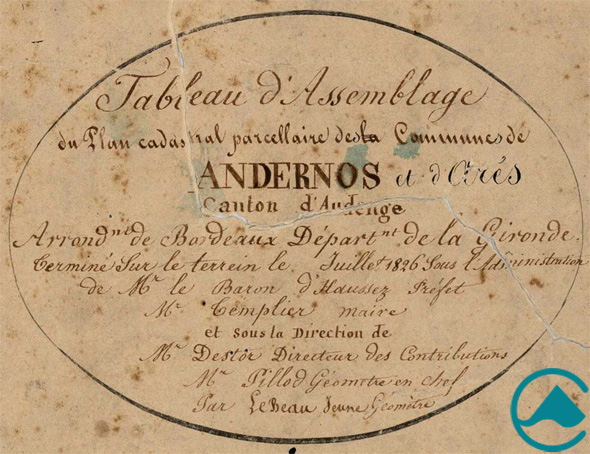 Tableau d'Assemblage
du Plan cadastral parcellaire des la Communes de
ANDERNOS et d'Arés
Canton d'Audenge
Arrond.nt de Bordeaux Départ.nt de la Gironde.
Terminé Sur le terrein le Juillet 1826 Sous l'Administration
de Mr. le Baron d'Haussez Préfet
Mr. Templier maire
et sous la Direction de
Mr. Destor Directeur des Contributions
Mr. Pillod Géomètre en chef
Par LeBeau Jeune Géomètre